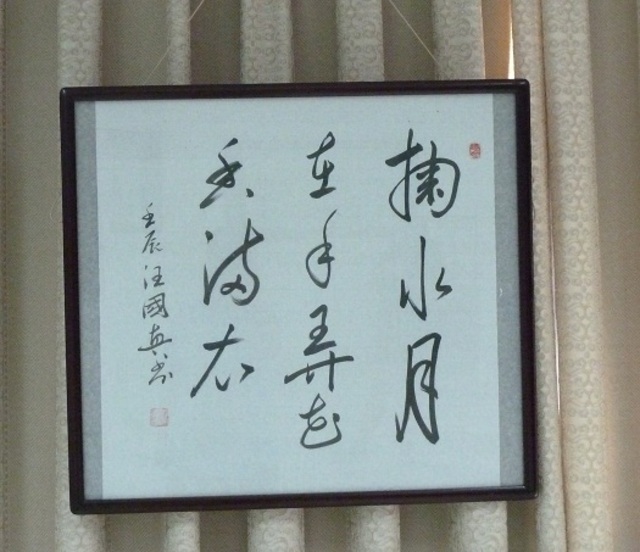 掬水月
在手弄花
香满衣
壬辰汪國真书